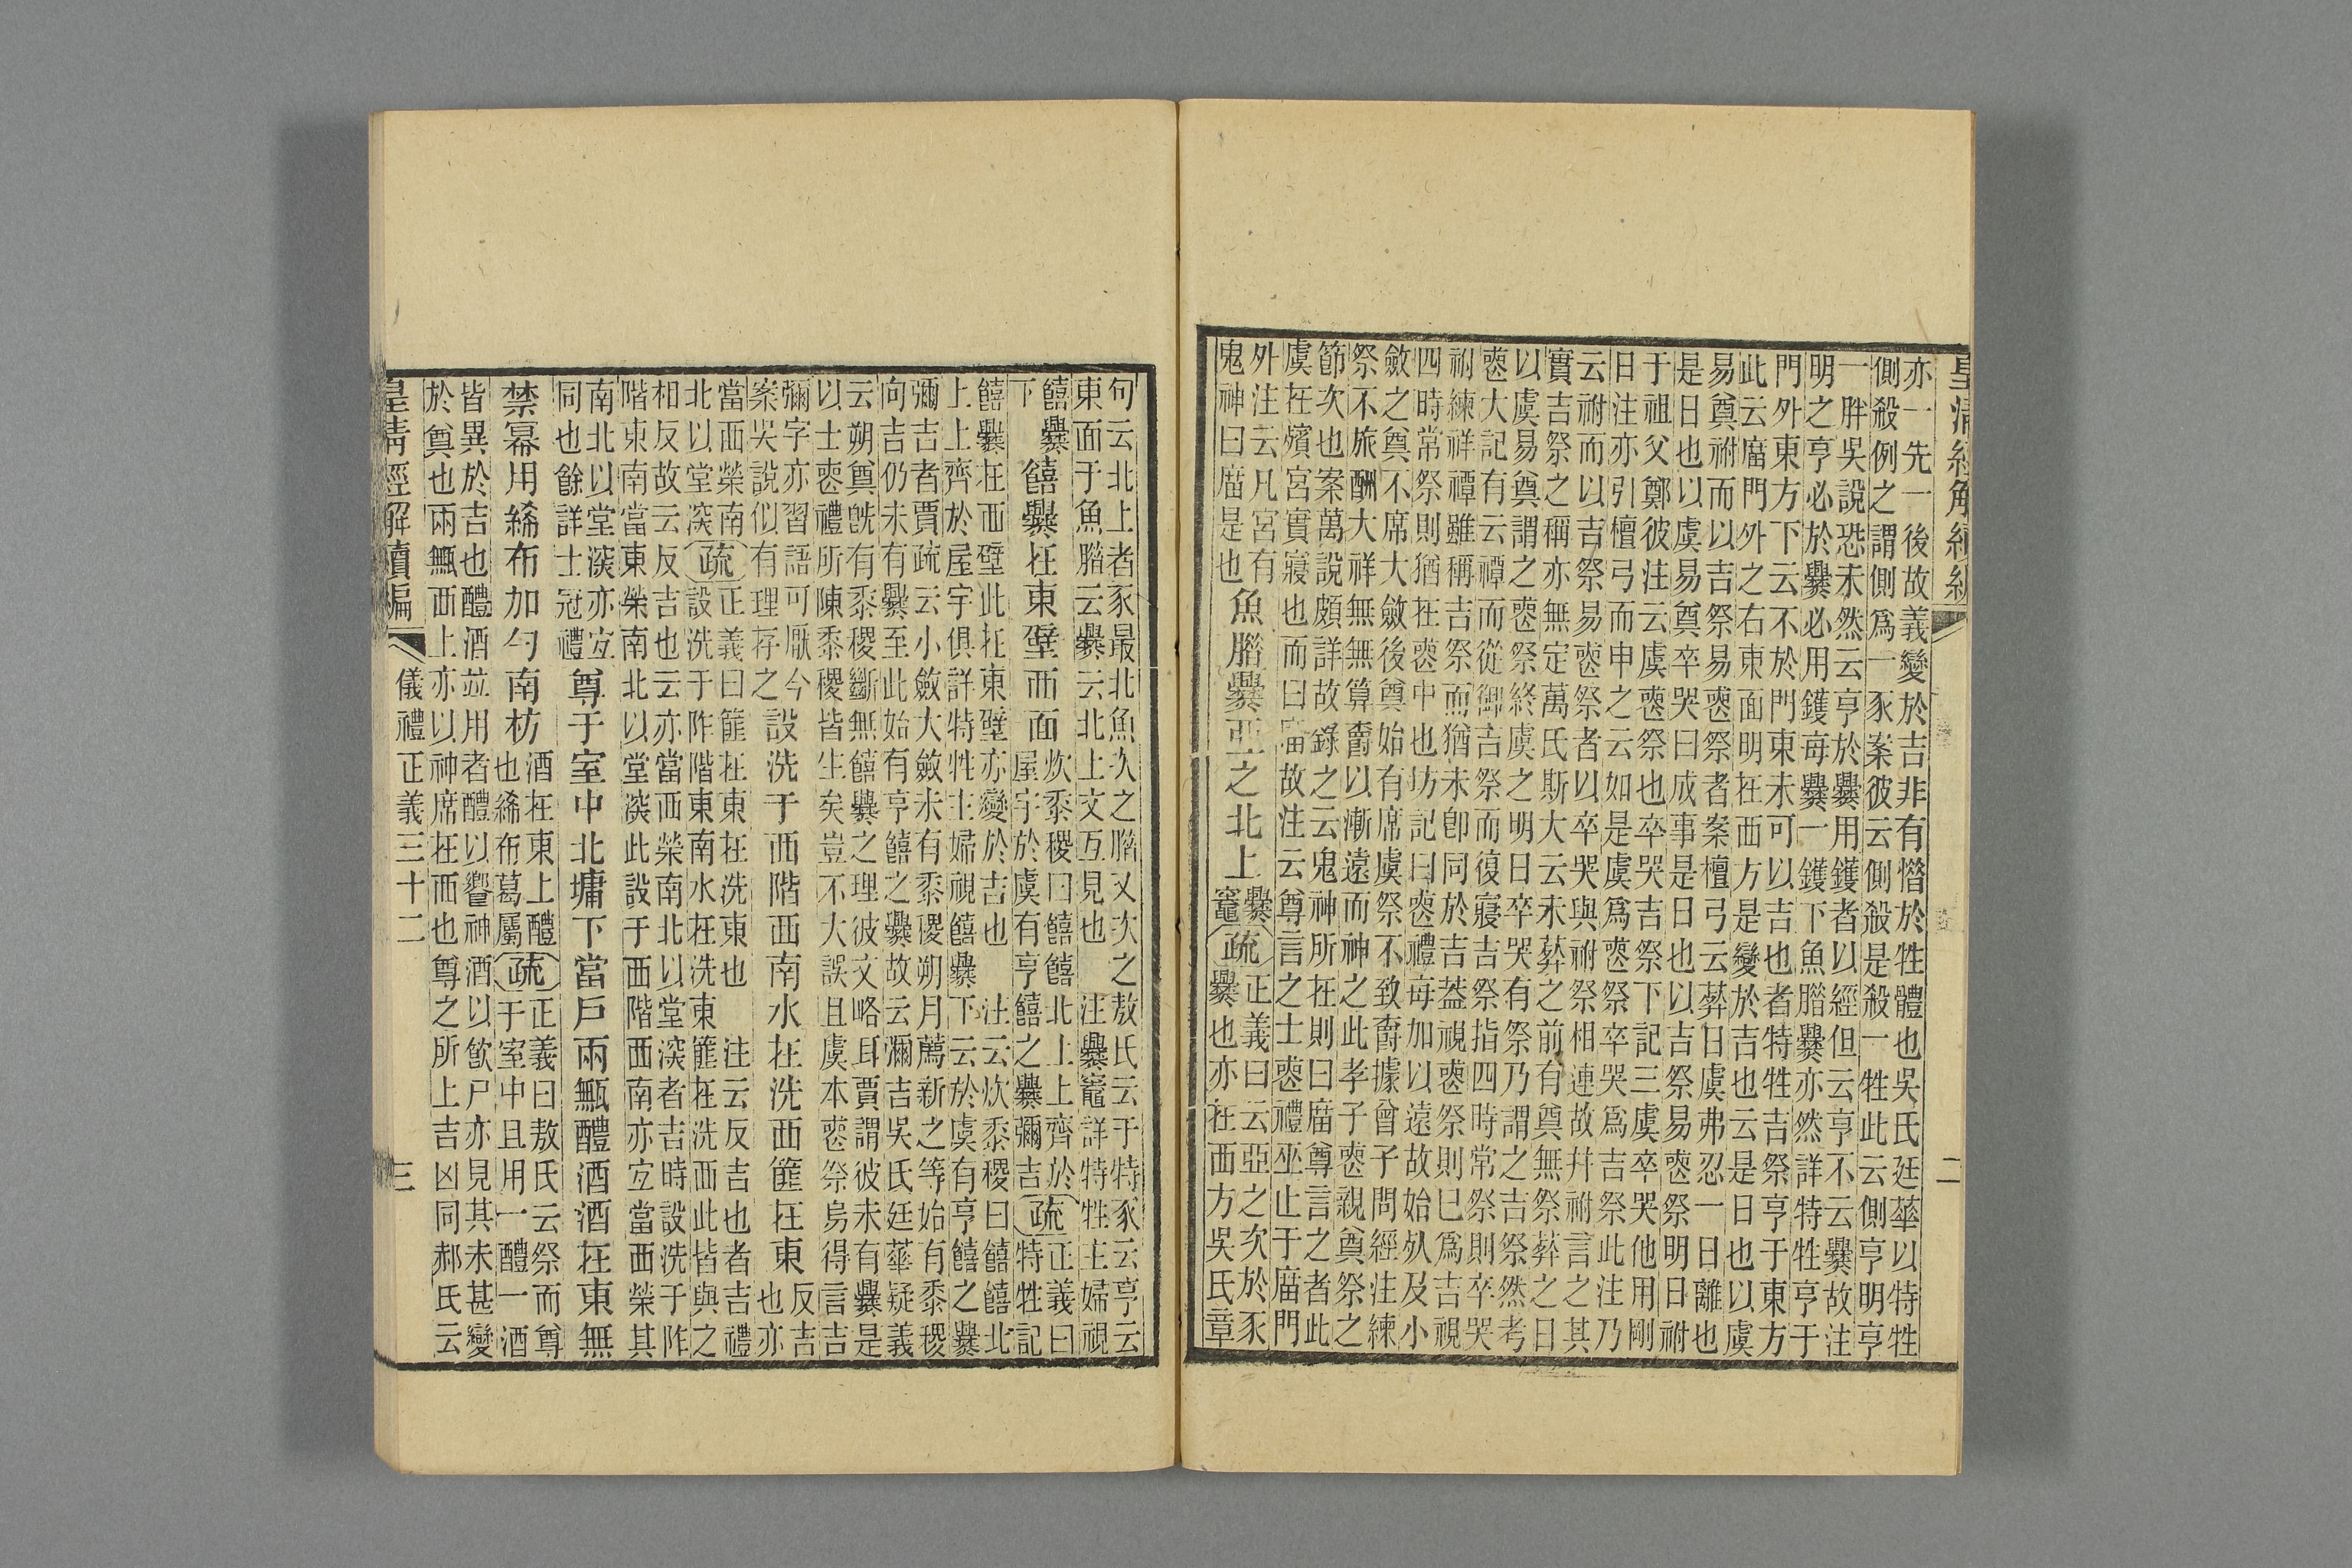 皇清經解續編 二
亦一先一後故義變於吉非有憯於牲體也吳氏廷華以特牲
側殺例之謂側爲一豕案彼云側殺是殺一牲此云側亨明亨
一胖吳說恐未然云亨於爨用鑊者以經但云亨不云爨故注
明之亨必於爨必用鑊每爨一鑊下魚腊爨亦然詳特牲亨于
門外東方下云不於門東未可以吉也者特牲吉祭亨于東方
此云廟門外之右東面明在西方是變於吉也云是日也以虞
易奠祔而以吉祭易喪祭者案檀弓云葬日虞弗忍一日離也
是日也以虞易奠卒哭曰成事是日也以吉祭易喪祭明日祔
于祖父鄭彼注云虞喪祭也卒哭吉祭下記三虞卒哭他用剛
日注亦引檀弓而申之云如是虞爲喪祭卒哭爲吉祭此注乃
云祔而以吉祭易喪祭者以卒哭與祔祭相連故幷祔言之其
實吉祭之稱亦無定萬氏斯大云未葬之前有奠無祭葬之日
以虞易奠謂之喪祭終虞之明日卒哭有祭乃謂之吉祭然考
喪大記有云禫而從御吉祭而復寢吉祭指四時常祭則卒哭
祔練祥禫雖稱吉祭而猶未卽同於吉蓋視喪祭則已爲吉視
四時常祭則猶在喪中也坊記曰喪禮每加以遠故始死及小
斂之奠不席大斂後奠始有席虞祭不致爵據曾子問經注練
祭不旅酬大祥無無算爵以漸遠而神之此孝子喪親奠祭之
節次也案萬說頗詳故錄之云鬼神所在則曰廟尊言之者此
虞在殯宮實寢也而曰廟故注云尊言之士喪禮巫止于廟門
外注云凡宮有
鬼神曰廟是也
魚腊爨亞之北上
爨
竈
疏
正義曰云亞之次於豕
爨也亦在西方吳氏章
句云北上者豕最北魚次之腊又次之敖氏云于特豕云亨云
東面于魚腊云爨云北上文互見也 注爨竈詳特牲主婦視
饎爨
下
饎爨在東壁西面
炊黍稷曰饎饎北上上齊於
屋宇於虞有亨饎之爨彌吉
疏
正義曰
特牲記
饎爨在西壁此在東壁亦變於吉也 注云炊黍稷曰饎饎北
上上齊於屋宇俱詳特牲主婦視饎爨下云於虞有亨饎之爨
彌吉者賈疏云小斂大斂未有黍稷朔月薦新之等始有黍稷
向吉仍未有爨至此始有亨饎之爨故云彌吉吳氏廷華疑義
云朔奠旣有黍稷斷無饎爨之理彼文略耳賈謂彼未有爨是
以士喪禮所陳黍稷皆生矣豈不大誤且虞本喪祭烏得言吉
彌字亦習語可厭今
案吳說似有理存之
設洗于西階西南水在洗西篚在東
反吉
也亦
當西榮南
北以堂深
疏
正義曰篚在東在洗東也 注云反吉也者吉禮
設洗于阼階東南水在洗東篚在洗西此皆與之
相反故云反吉也云亦當西榮南北以堂深者吉時設洗于阼
階東南當東榮南北以堂深此設于西階西南亦宜當西榮其
南北以堂深亦宜
同也餘詳士冠禮
尊于室中北墉下當戶兩甒醴酒酒在東無
禁冪用綌布加勺南枋
酒在東上醴
也綌布葛屬
疏
正義曰敖氏云祭而尊
于室中且用一醴一酒
皆異於吉也醴酒並用者醴以饗神酒以飮尸亦見其未甚變
於奠也兩甒西上亦以神席在西也尊之所上吉凶同郝氏云
皇清經解續編 儀禮正義三十二 三